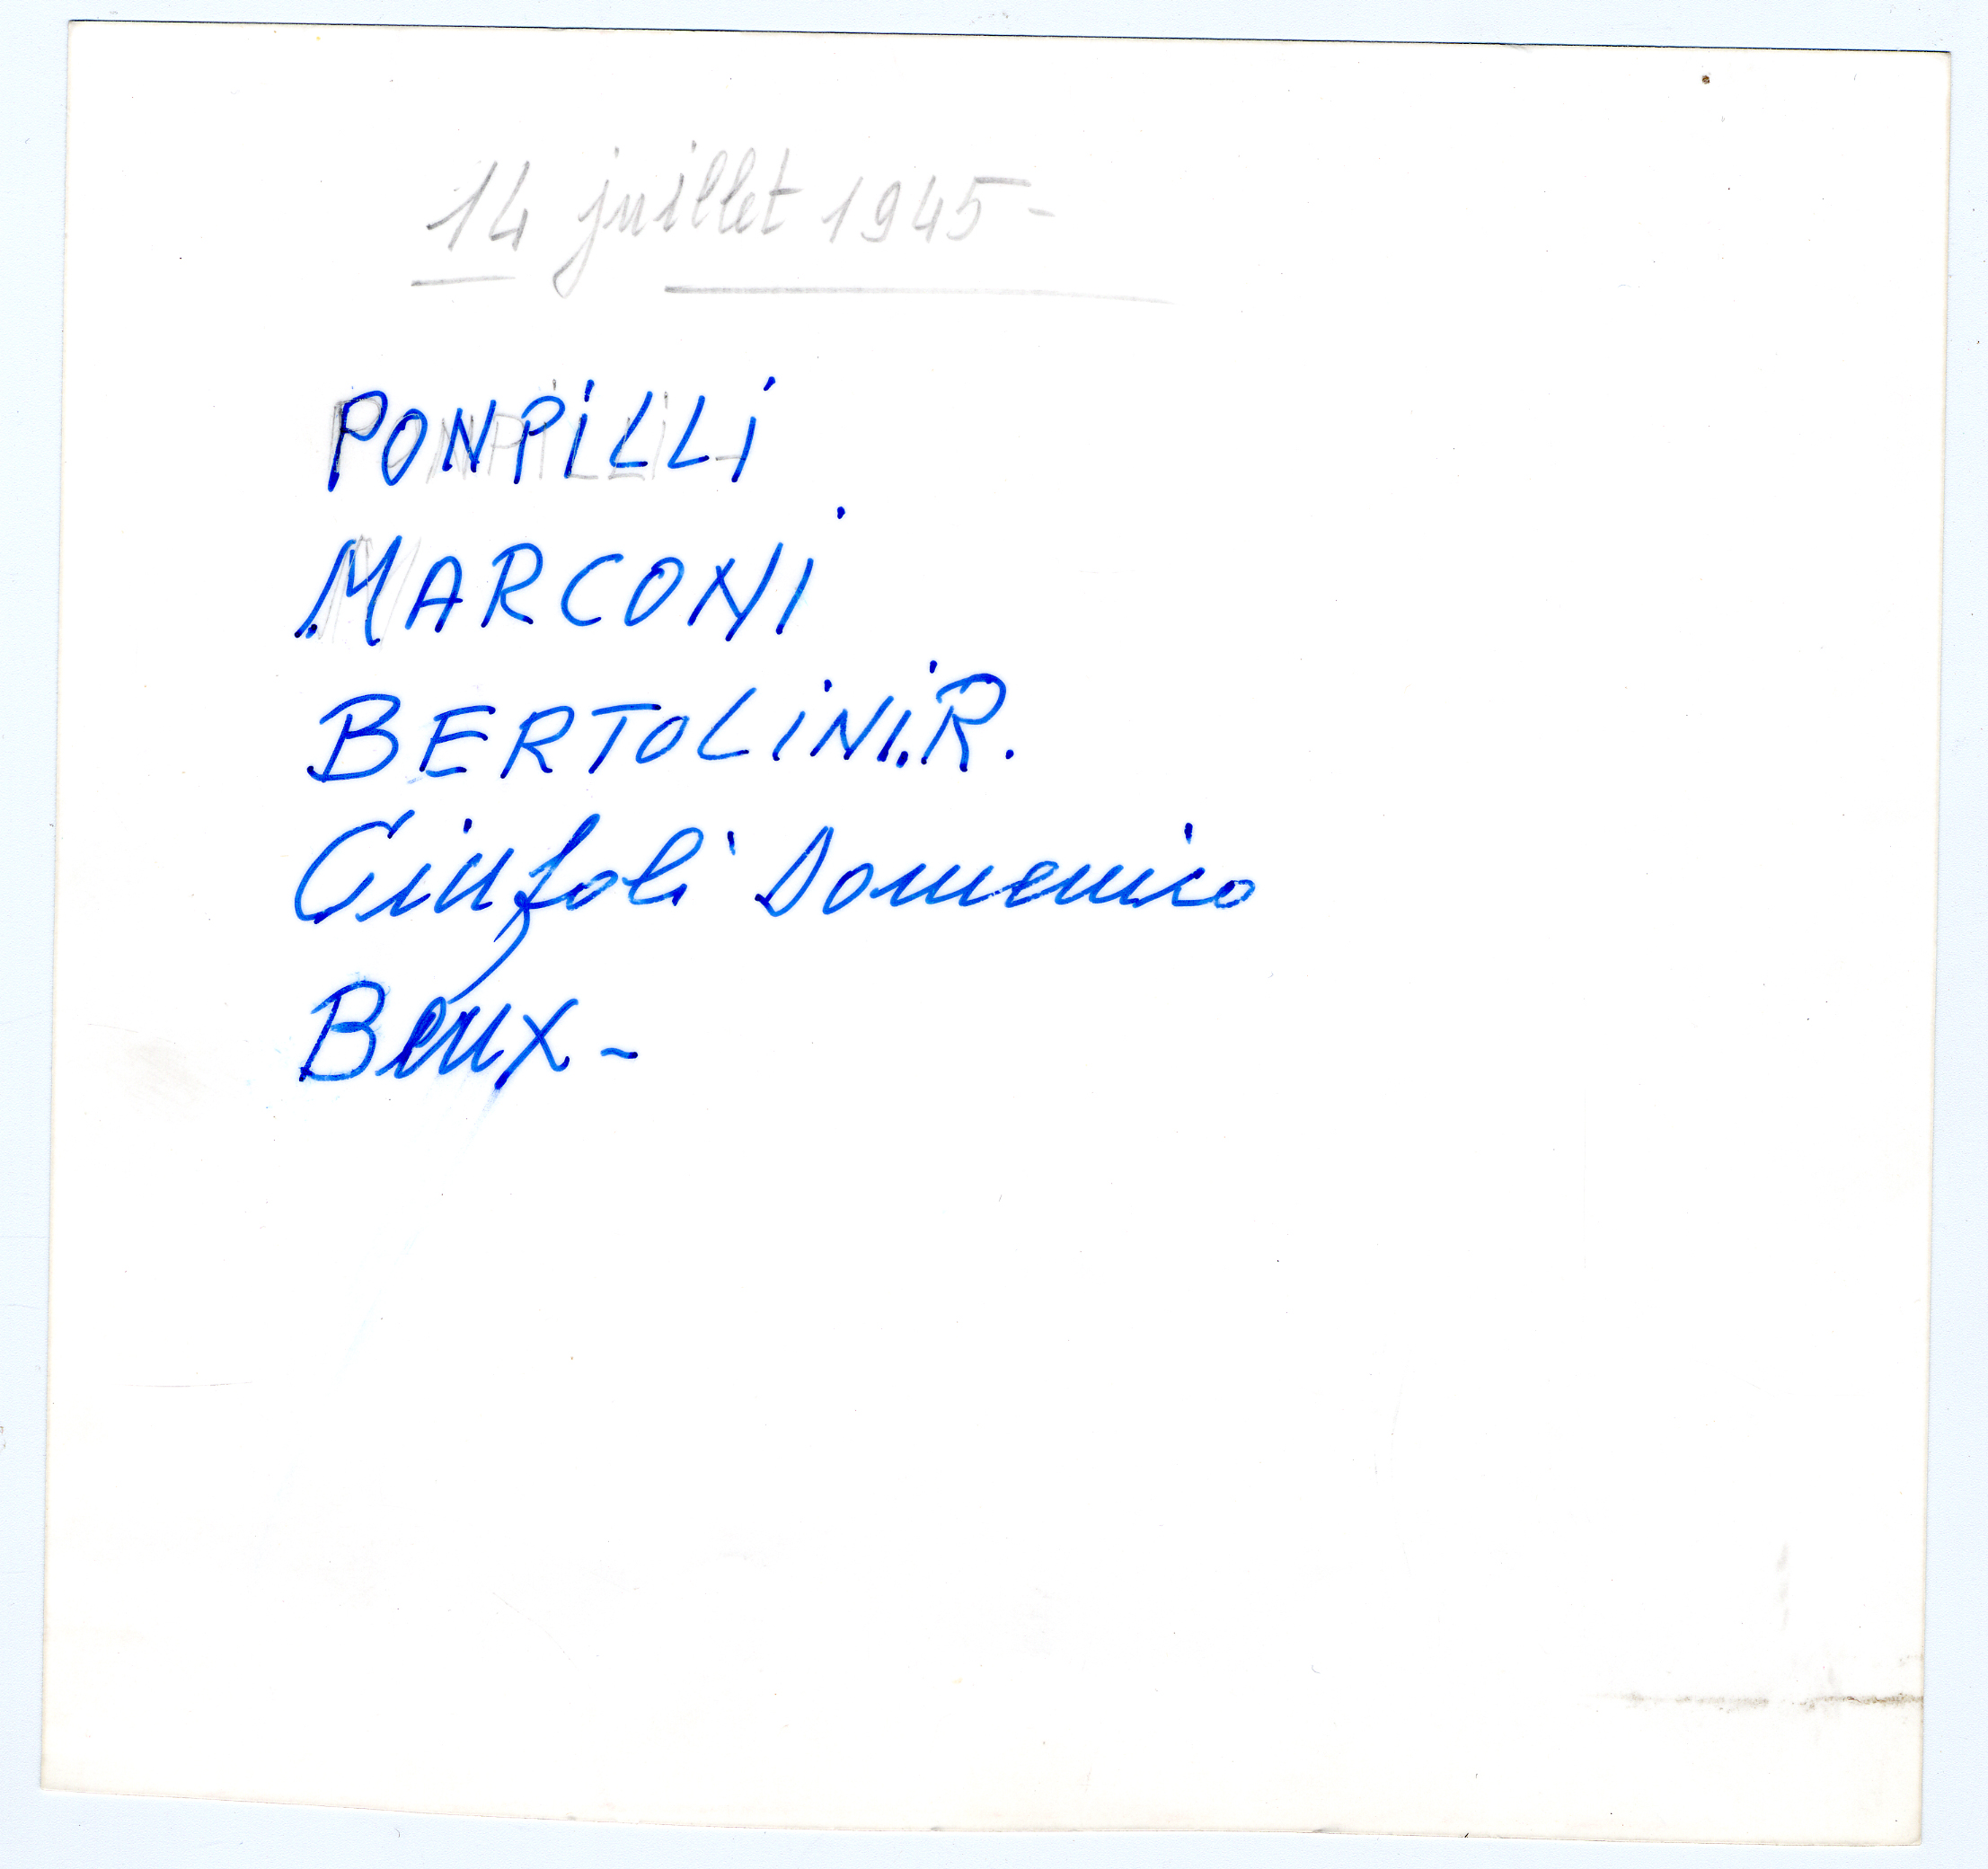 14 juillet 1945-
PONPiLLi
MARCONi
BERTOLiNi.R.
Ciufoli Domenico
Beux -